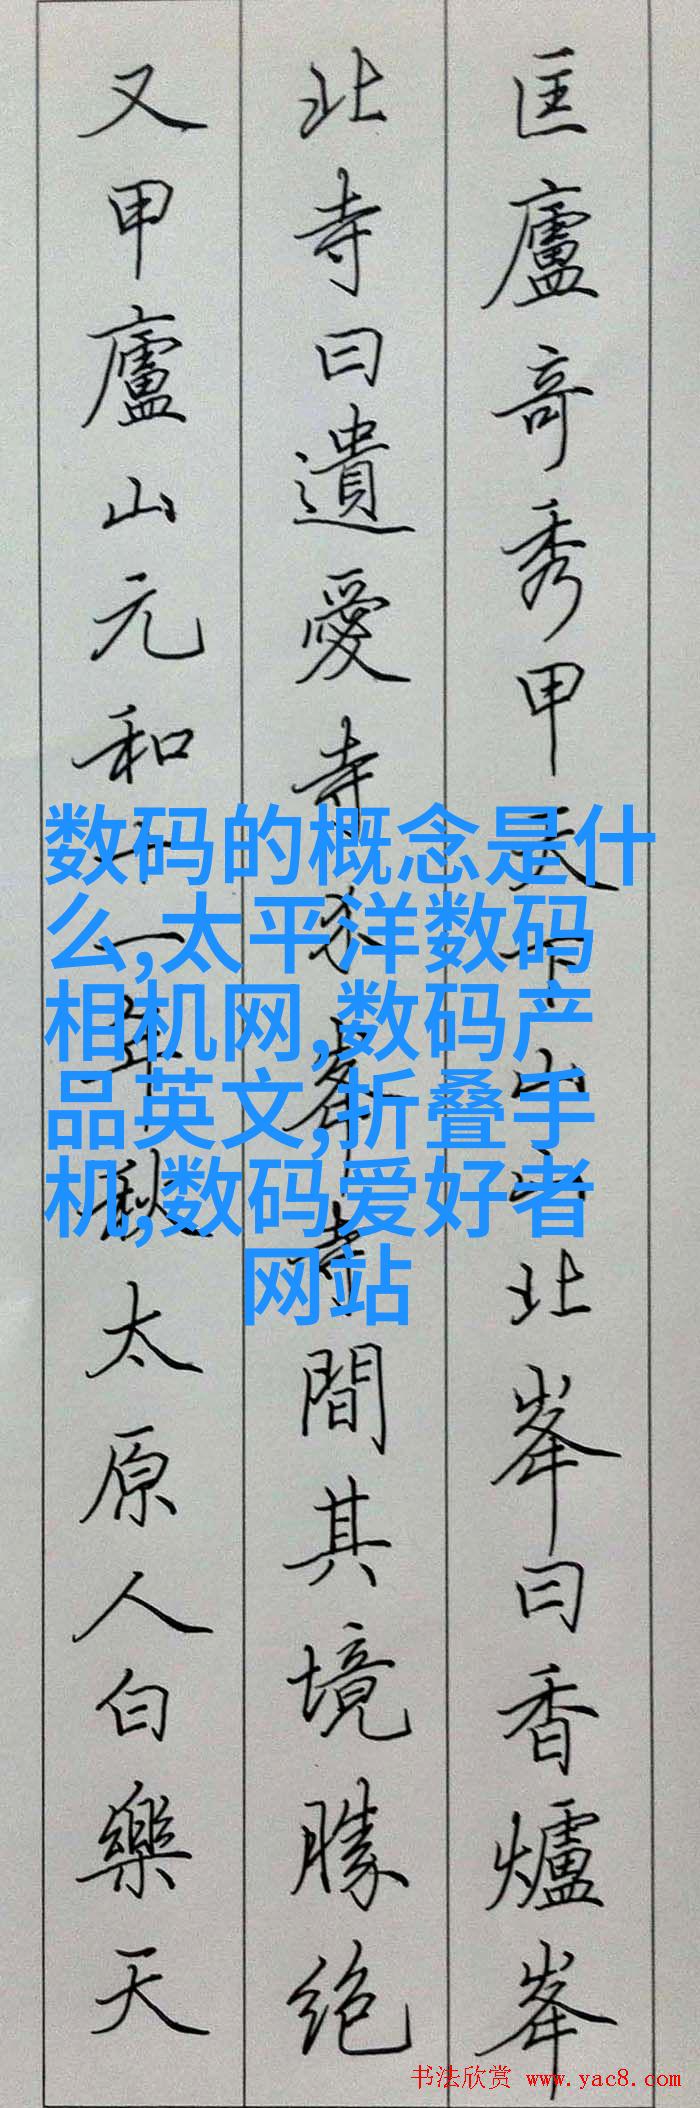 匡廬竒秀甲天下山山北峯曰香爐峯
北寺曰遺愛寺介峯寺間其境勝絶
又甲廬山元和十一年秋太原人白樂天
数码的概念是什
么,太平洋数码
相机网,数码产
品英文,折叠手
机,数码爱好者
网站
书法欣赏 www.yac8.com